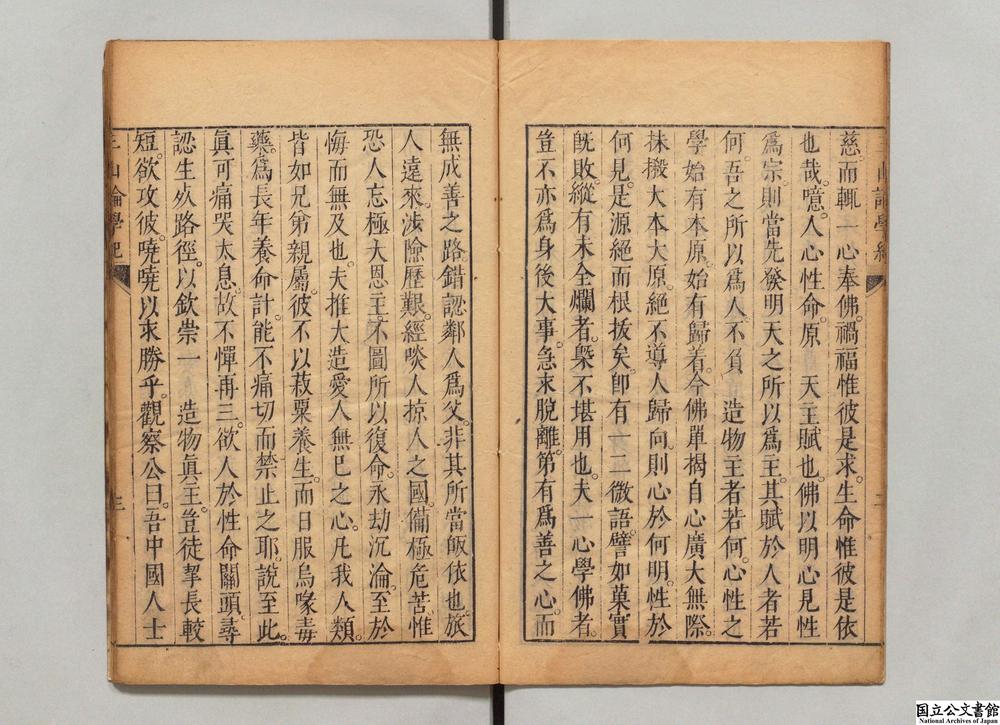 慈。而輒一心奉佛。禍福惟彼是求。生命惟彼是依
也哉。噫。人心性命。原　天主賦也。佛以明心見性
爲宗。則當先發明天之所以爲主。其賦於人者若
何。吾之所以爲人。不負　造物主者若何。心性之
學始有本原。始有歸着。今佛單揭自心廣大無際。
抹搬大本大原。絕不導人歸向。則心於何明。性於
何見。是源絕而根拔矣。卽有一二微語。譬如菓實
旣敗。縱有未全爛者。槩不堪用也。夫一心學佛者。
豈不亦爲身後大事。急求脫離。第有爲善之心。而
無成善之路。錯認鄰人爲父。非其所當皈依也。旅
人遠來。涉險歷艱。經啖人掠人之國。備極危苦。惟
恐人忘極大恩主。不圖所以復命。永劫沉淪。至於
悔而無及也。夫推大造愛人無已之心。凡我人類。
皆如兄弟親屬。彼不以菽粟養生。而日服烏喙毒
藥。爲長年養命計。能不痛切而禁止之耶。說至此。
眞可痛哭太息。故不憚再三。欲人於性命關頭。尋
認生死路徑。以欽崇一　造物眞主。豈徒挈長較
短。欲攻彼。嘵嘵以求勝乎。觀察公曰。吾中國人士
三山論學紀
三
国立公文書館
National Archives of Japan